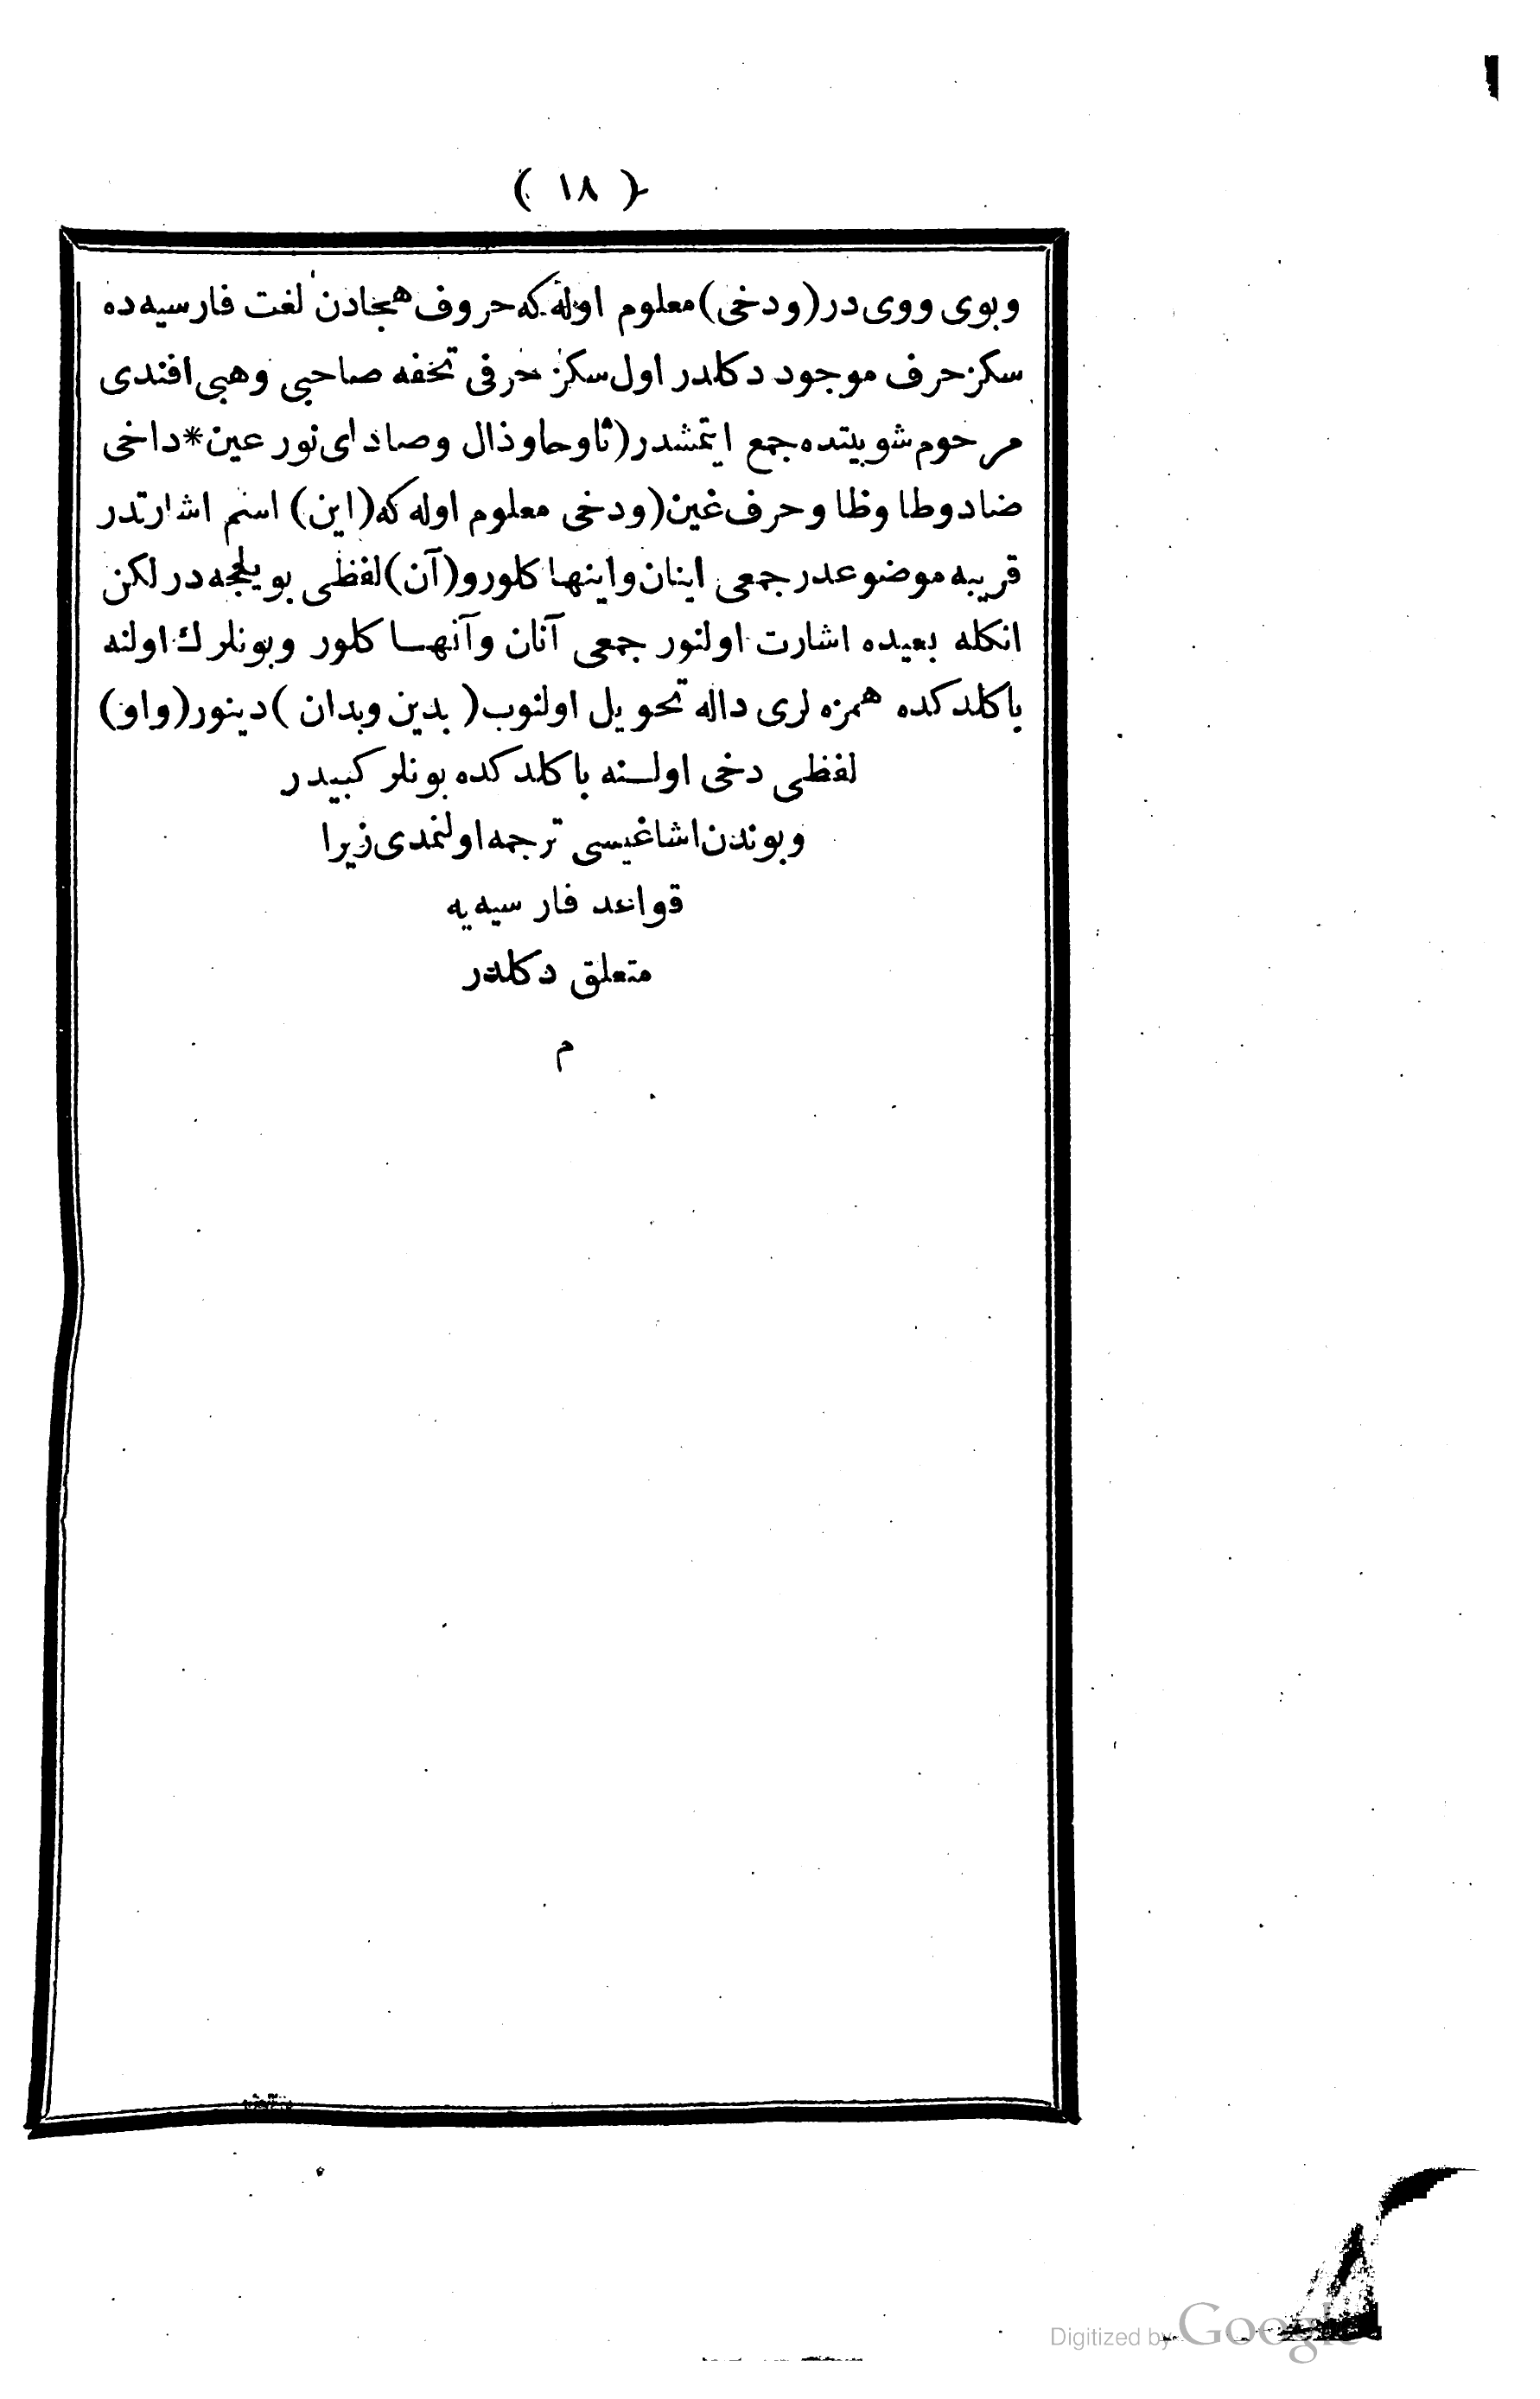 ( ١٨ )
وبوی ووی در (ودخی) معلوم اوله که حروف هجادن لغت فارسیه ده
سکز حرف موجود دکلدر اول سکز حرفی تحفه صاحبی وهبی افندی
مرحوم شو بیتده جمع ایتمشدر (ثا وحا وذال وصاد ای نور عین * داخی
ضاد وطا وظا وحرف غین (ودخی معلوم اوله که (این) اسم اشارتدر
قریبه موضوعدر جمعی اینان واینها کلور و (آن) لفظی بویلجه در لکن
انکله بعیده اشارت اولنور جمعی آنان وآنهـا کلور وبونلرك اولنه
با کلدکده همزه لری داله تحویل اولنوب ( بدین وبدان ) دینور (واو)
لفظی دخی اولـنه با کلدکده بونلر کبیدر
وبوندن اشاغیسی ترجمه اولنمدی زیرا
قواعد فارسیه یه
متعلق دکلدر
م
Digitized by Google